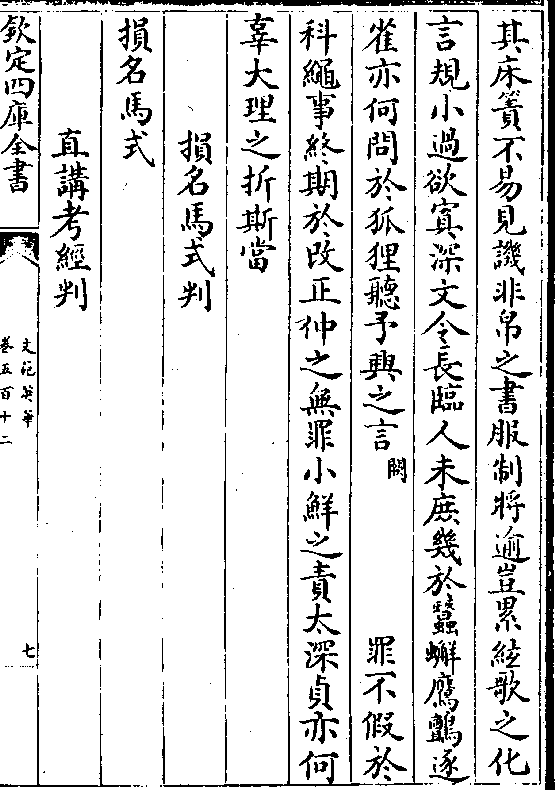 其床簀不易見譏非帛之書服制将逾豈累絃歌之化
言規小過欲寘深文令長臨人未庶幾於蠶蠏鷹鸇逐
雀亦何問於狐狸聽予興之言闕罪不假於
科繩事終期於改正仲之無罪小鮮之責太深貞亦何
辜大理之折斯當
損名馬式判
損名馬式
直講考經判
欽定四庫全書
文苑英華
卷五百十二
七